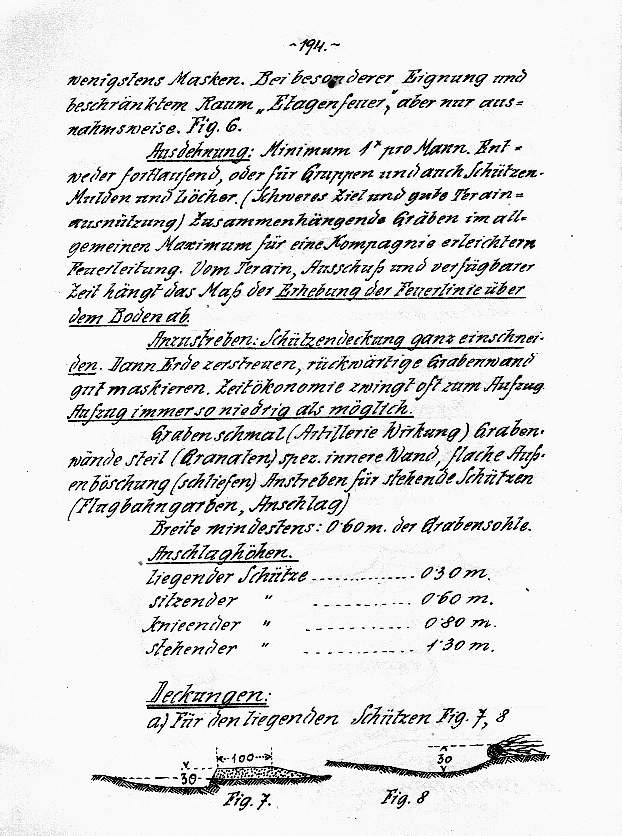 ~194.~
wenigstens Masken. Bei besonderer Eignung und
beschränktem Raum „Etagenfeuer", aber nur aus=
nahmsweise. Fig. 6.
Ausdehnung: Minimum 1ˣ pro Mann. Ent=
weder fortlaufend, oder für Gruppen und auch Schützen-
Mulden und Löcher. (Schweres Ziel und gute Terain=
ausnützung) Zusammenhängende Gräben im all=
gemeinen Maximum für eine Kompagnie erleichtern
Feuerleitung. Vom Terain, Ausschuß und verfügbarer
Zeit hängt das Maß der Erhebung der Feuerlinie über
dem Boden ab.
Anzustreben: Schützendeckung ganz einschnei-
den. Dann Erde zerstreuen, rückwärtige Grabenwand
gut maskieren. Zeitökonomie zwingt oft zum Aufzug
Aufzug immer so niedrig als möglich.
Graben schmal (Artillerie Wirkung) Graben-
wände steil (Granaten) spez. innere Wand, flache Auß-
enböschung (schliefen) Anstreben für stehende Schützen
(Flugbahngarben, Anschlag)
Breite mindestens: 0·60 m. der Grabensohle.
Anschlaghöhen.
liegender Schütze ............... 0·30 m.
sitzender " ............. 0·60 m.
knieender " ............. 0·80 m.
stehender " ............. 1·30 m.
Deckungen:
a) Für den liegenden Schützen Fig. 7, 8
100
30
30
Fig. 7.
Fig. 8